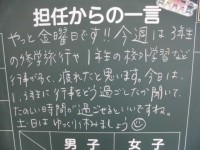 担任からの一言
やっと金曜日です!!今週は3年生
の修学旅行や1年生の校外学習など
行事が多く、疲れたと思います。今日は、
1,3年生に行事をどう過ごしたか聞いて、
たのしい時間が過ごせるといいですね。
土日はゆっくり休みましょう☺
男子 女子